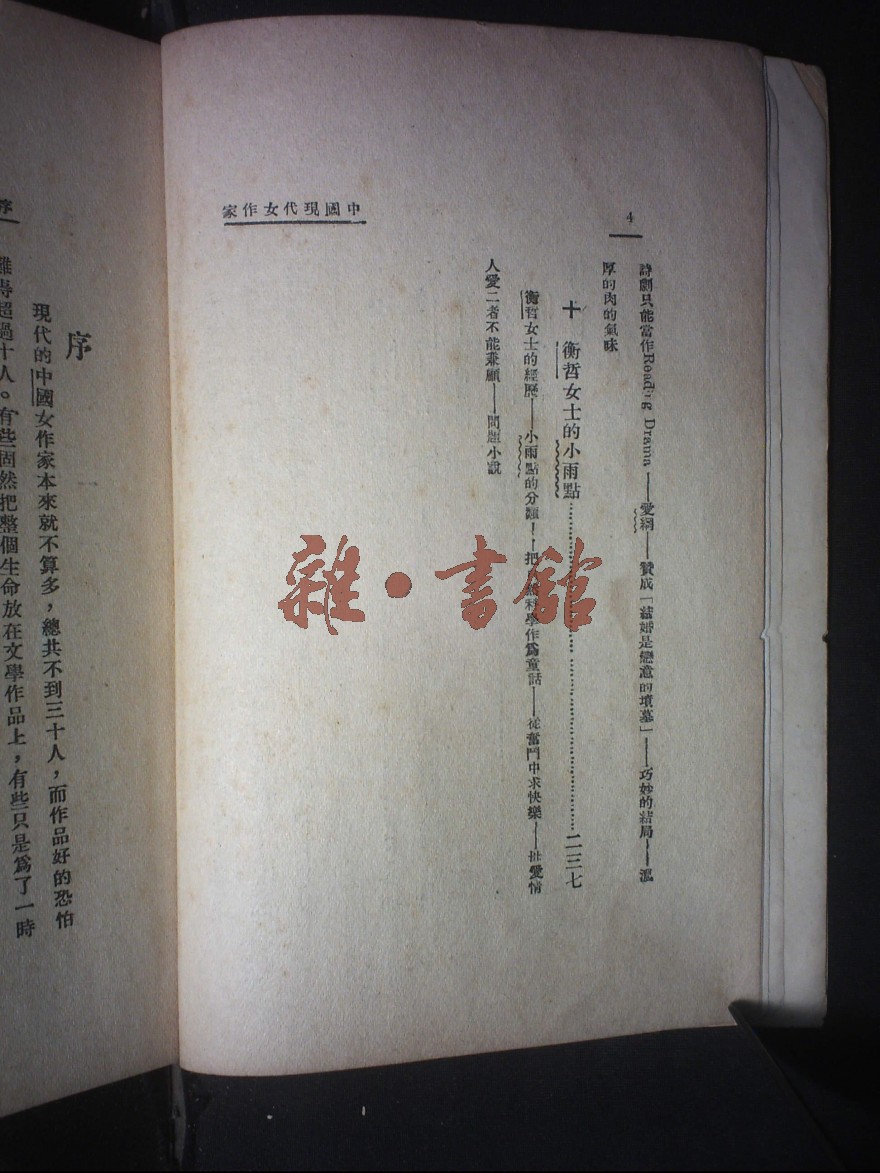 4
中國現代女作家
詩劇只能當作Reading Drama——愛網——贊成「結婚是戀愛的墳墓」——巧妙的結局——濃
厚的肉的氣味
十 衡哲女士的小雨點……………………二三七
衡哲女士的經歷——小雨點的分題——把自然科學作爲童話——從奮鬥中求快樂——愛情
人愛二者不能兼顧——問題小說
雜·書館
序
序
現代的中國女作家本來就不算多，總共不到三十人，而作品好的恐怕
難得超過十人。有些固然把整個生命放在文學作品上，有些只是爲了一時